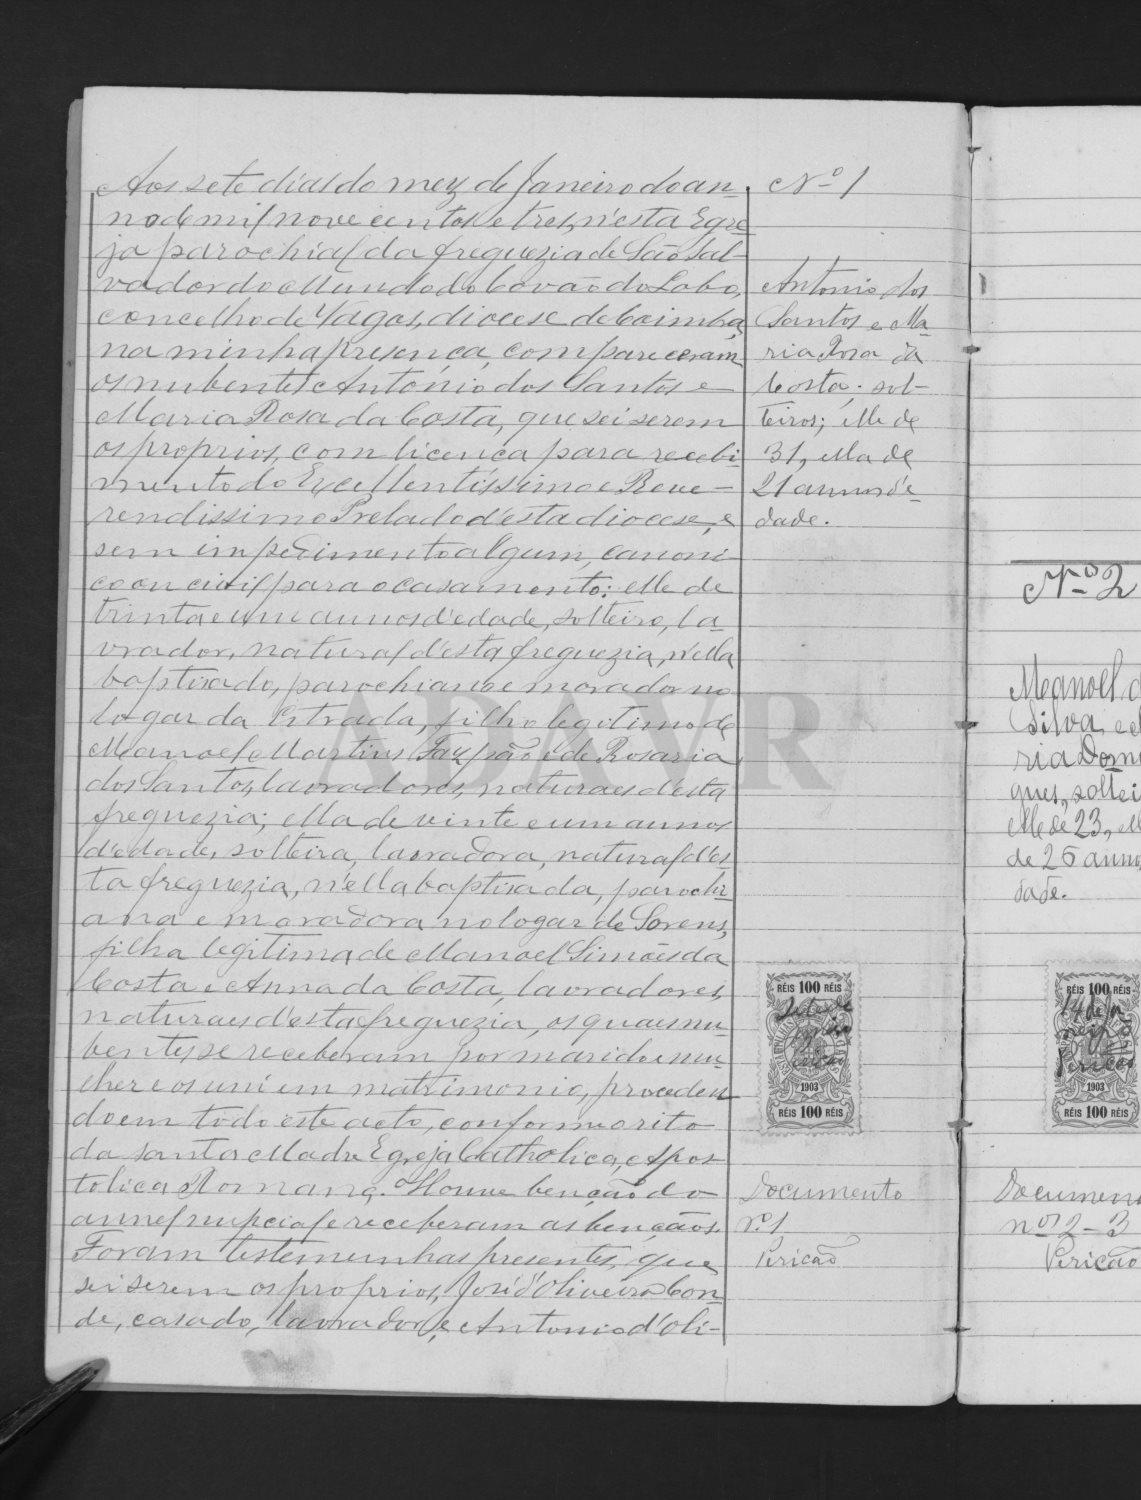 Aos sete dias do mez de Janeiro do an-
no de mil nove centos e tres, n'esta Egre-
ja parochial da freguezia de São Sal-
vador do Mundo do Covão do Lobo,
concelho de Vagos, diocese de Coimbra,
na minha presença, compareceram
os nubentes Antonio dos Santos e
Maria Rosa da Costa, que sei serem
os proprios, com licença para recebi-
mento do Excellentissimo e Reve-
rendissimo Prelado d'esta diocese, e
sem impedimento algum, canoni-
co ou civil para o casamento: elle de
trinta e um annos d'edade, solteiro, la-
vrador, natural d'esta freguezia, n'ella
baptisado, parochiano e morador no
logar da Estrada, filho legitimo de
Manoel Martins Fazpão e de Rosaria
dos Santos, lavradores, naturaes d'esta
freguezia; ella de vinte e um annos
d'edade, solteira, lavradora, natural d'es-
ta freguezia, n'ella baptisada, parochi-
ana e moradora no logar de Sorens,
filha legitima de Manoel Simões da
Costa e Anna da Costa, lavradores,
naturaes d'esta freguezia, os quaes nu-
bentes se receberam por marido e mu-
lher e os uni em matrimonio, proceden-
do em todo este acto, conforme o rito
da santa Madre Egreja Catholica, Apos-
tolica Romana. Houve benção do
annel nupcial e receberam as bençãos.
Foram testemunhas presentes, que
sei serem os proprios, José d'Oliveira Con-
de, casado, lavrador, e Antonio d'Oli-
Nº 1
Antonio dos
Santos e Ma-
ria Rosa da
Costa; sol-
teiros; elle de
31, ella de
21 annos d'e-
dade.
RÉIS 100 RÉIS
1903
RÉIS 100 RÉIS
Documento
nº 1
Pericão
Nº 2
Manoel d
Silva, e
ria Domi
gues, soltei
elle de 23, ell
de 26 anno
dade.
RÉIS 100 RÉIS
14 de Ja
Pericão
1903
RÉIS 100 RÉIS
Documen
nos 2-3
Pericão
ADAVR